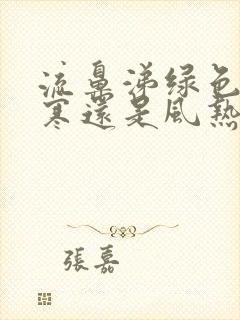 流鼻涕绿色
寒還是風熱
張嘉